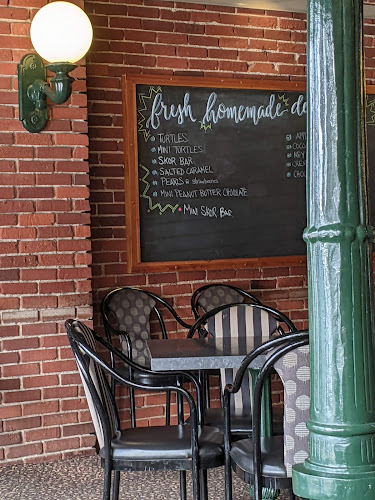 fresh homemade de
TURTLES
MINI TURTLES
SKOR BAR
SALTED CARAMEL
PEARLS & strawberries
MINI PEANUT BUTTER CHOCOLATE
MINI SKOR BAR
APP
COCO
KEY
CHOC